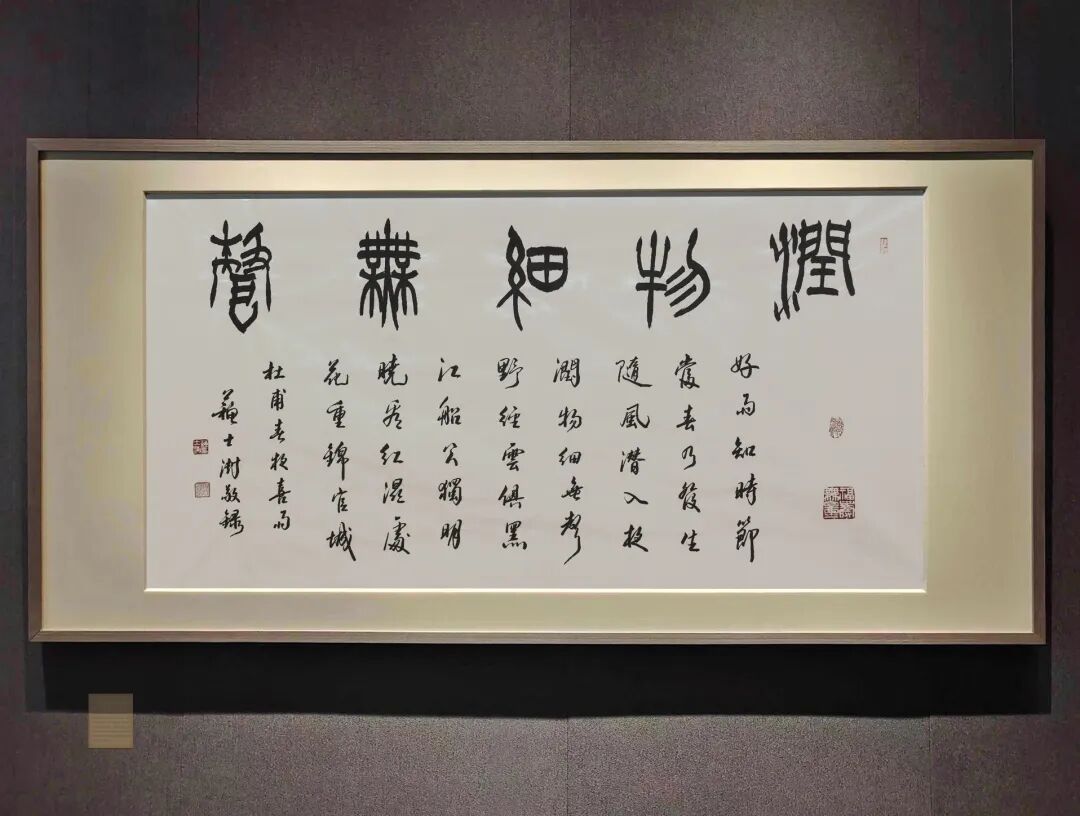 潤物細無聲
好雨知時節
當春乃發生
隨風潛入夜
潤物細無聲
野徑雲俱黑
江船火獨明
曉看紅濕處
花重錦官城
杜甫春夜喜雨
蘇士澍敬録